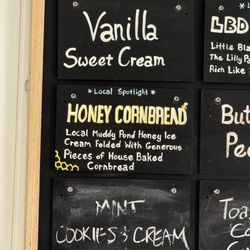 Vanilla
Sweet Cream
* Local Spotlight *
HONEY CORNBREAD
Local Muddy Pond Honey Ice
Cream Folded With Generous
Pieces of House Baked
Cornbread
MINT
COOKIES & CREAM
LBD
Little Bla
The Lilly Pa
Rich Like
But
Pe
Toa